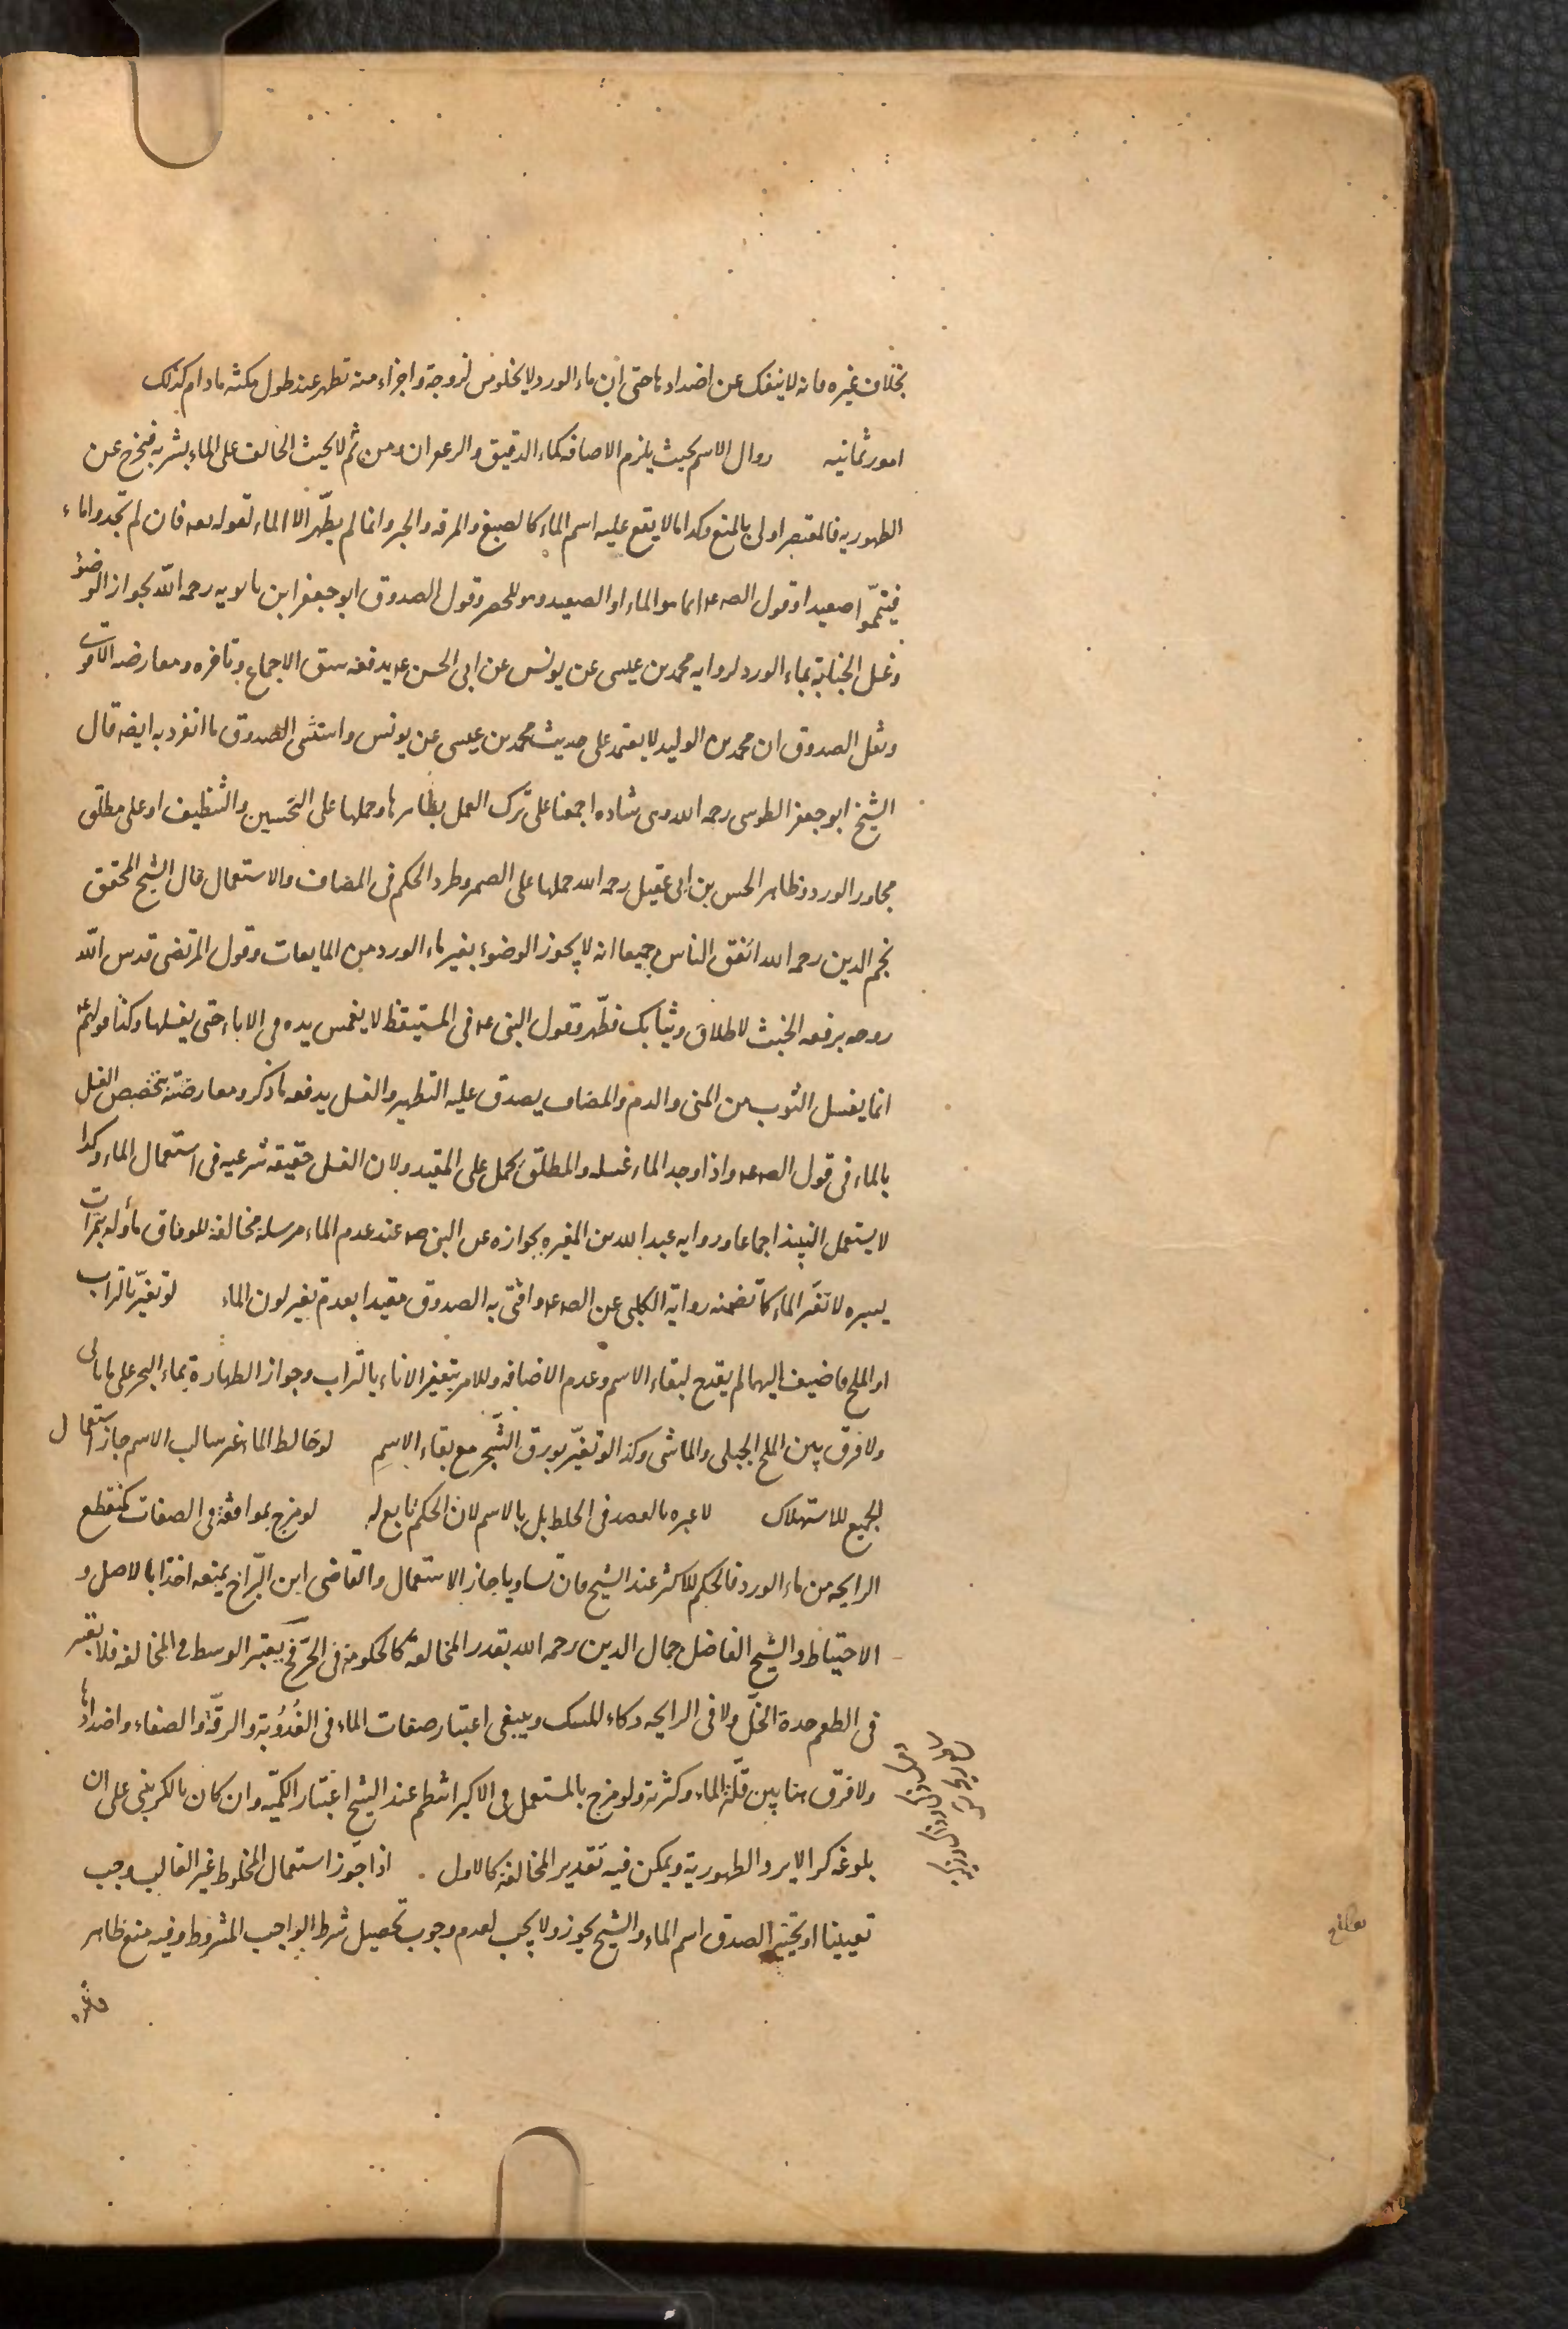 بخلاف غيره فانه لا ينفك عن اضدادها حتى ان ماء الورد لا يخلو من لزوجة واجزاء منه تظهر عند طول مكثه مادام كذلك
امور ثمانيه زوال الاسم بحيث يلزم الاضافه كماء الدقيق والزعفران ومن ثم لا يحنث الحالف على الماء بشربه فيخرج عن
الطهوريه فالمعتصر اولى بالمنع وكذا ما لا يقع عليه اسم الماء كالصبغ والمرقه والحبر وانما لم يطهّر الا الماء لقوله تعه فان لم تجدوا ماء
فتيمّموا صعيدا وقول الصه عه انما هو الماء او الصعيد وهو للحصر وقول الصدوق ابو جعفر ابن بابويه رحمه الله بجواز الوضوء
وغسل الجنابة بماء الورد لروايه محمد بن عيسى عن يونس عن ابى الحسن عه يدفعه سبق الاجماع وتاخره ومعارضه الاقوى
ونقل الصدوق ان محمد بن الوليد لا يعتمد على حديث محمد بن عيسى عن يونس واستثنى الصدوق ما انفرد به ايضه قال
الشيخ ابو جعفر الطوسى رحمه الله وهى شاذه اجمعنا على ترك العمل بظاهرها وحملها على التحسين والتنظيف او على مطلق
مجاور الورد وظاهر الحسن بن ابى عقيل رحمه الله حملها على الضرورة وطرد الحكم فى المضاف والاستعمال قال الشيخ المحقق
نجم الدين رحمه الله اتفق الناس جميعا انه لا يجوز الوضوء بغير ماء الورد من المايعات وقول المرتضى قدس الله
روحه برفعه الخبث لاطلاق وثيابك فطهّر وقول النبى عه فى المستيقظ لا يغمس يده فى الاناء حتى يغسلها وكذا قوله عه
انما يغسل الثوب من المنى والدم والمضاف يصدق عليه التطهير والغسل يدفعه ما ذكر ومعارضته بتخصيص الغسل
بالماء فى قول الصه عه واذا وجد الماء غسله والمطلق يحمل على المقيد ولان الغسل حقيقه شرعيه فى استعمال الماء وكذا
لا يستعمل النبيذ اجماعا وروايه عبد الله بن المغيره بجوازه عن النبى صه عند عدم الماء مرسلة مخالفة للوفاق مأوله بتمرات
يسيره لا تغيّر الماء كما تضمنه رواية الكلبى عن الصه عه وافتى به الصدوق مقيدا بعدم تغير لون الماء لو تغيّر بالتراب
او الملح فاضيف اليهما لم يقدح لبقاء الاسم وعدم الاضافه وللامر بتعفير الاناء بالتراب وجواز الطهارة بماء البحر على ما ياتى
ولا فرق بين الملح الجبلى والمائى وكذا لو تغيّر بورق الشّجر مع بقاء الاسم لو خالط الماء غير سالب الاسم جاز استعمال
الجميع للاستهلاك لا عبره بالقصد فى الخلط بل بالاسم لان الحكم تابع له لو مزج بموافقة فى الصفات كمنقطع
الرايحه من ماء الورد فالحكم للاكثر عند الشيخ فان تساويا جاز الاستعمال والقاضى ابن البّراج يمنعه اخذا بالاصل و
الاحتياط والشيخ الفاضل جمال الدين رحمه الله يقدر المخالفة كالحكومة فى الحرّ فح يعتبر الوسط فى المخالفه فلا يعتبر
فى الطعم حدة الخلّ ولا فى الرايحه ذكاء المسك وينبغى اعتبار صفات الماء فى العُذُوبة والرقّة والصفاء واضدادها
ولا فرق هنا بين قلّة الماء وكثرته ولو مزج بالمستعمل فى الاكبر اشطم عند الشيخ اعتبار الكمّيه وان كان بالكر بنى على ان
بلوغه كرا لا يرد الطهورية ويمكن فيه تقدير المخالفة كالاول . اذا جوّز استعمال المخلوط غير الغالب وجب
تعيينا او تخييرا لصدق اسم الماء والشيخ يجوز ولا يجب لعدم وجوب تحصيل شرط الواجب المشروط وفيه منع ظاهر